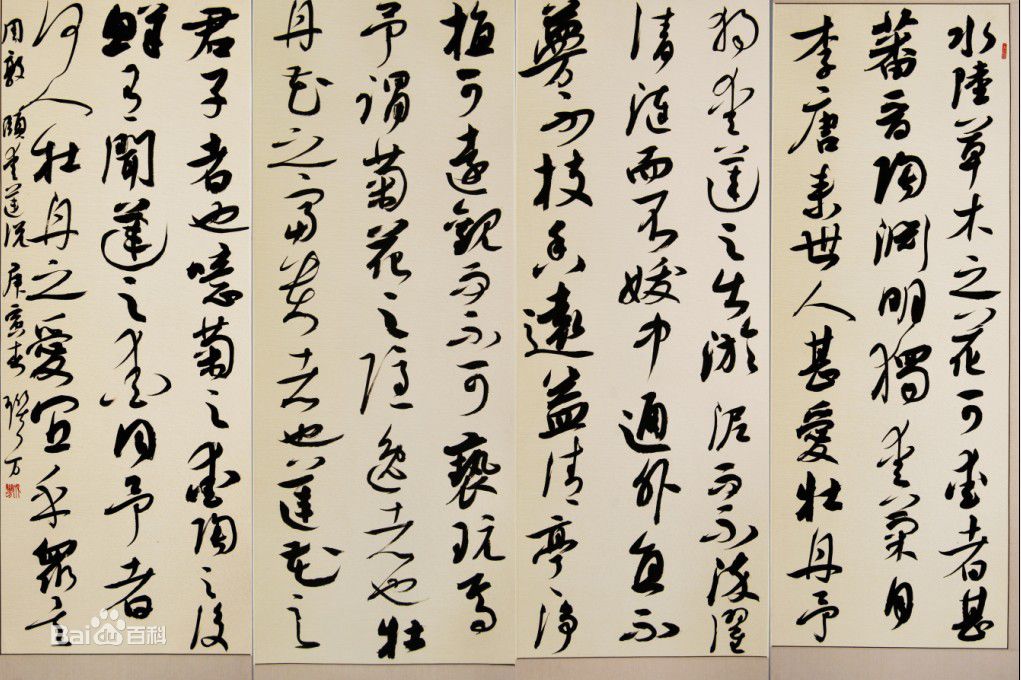 水陸草木之花可愛者甚
蕃晋陶淵明獨愛菊自
李唐来世人甚愛牡丹予
独愛蓮之出淤泥而不染濯
清漣而不妖中通外直不
蔓不枝香遠益清亭亭净
植可遠觀而不可褻玩焉
予謂菊花之隱逸者也牡
丹花之富貴者也蓮花之
君子者也噫菊之愛陶之後
鮮有聞蓮之愛同予者
何人牡丹之愛宜乎眾矣
周敦頤愛蓮説 庚寅春 万
Bai百科